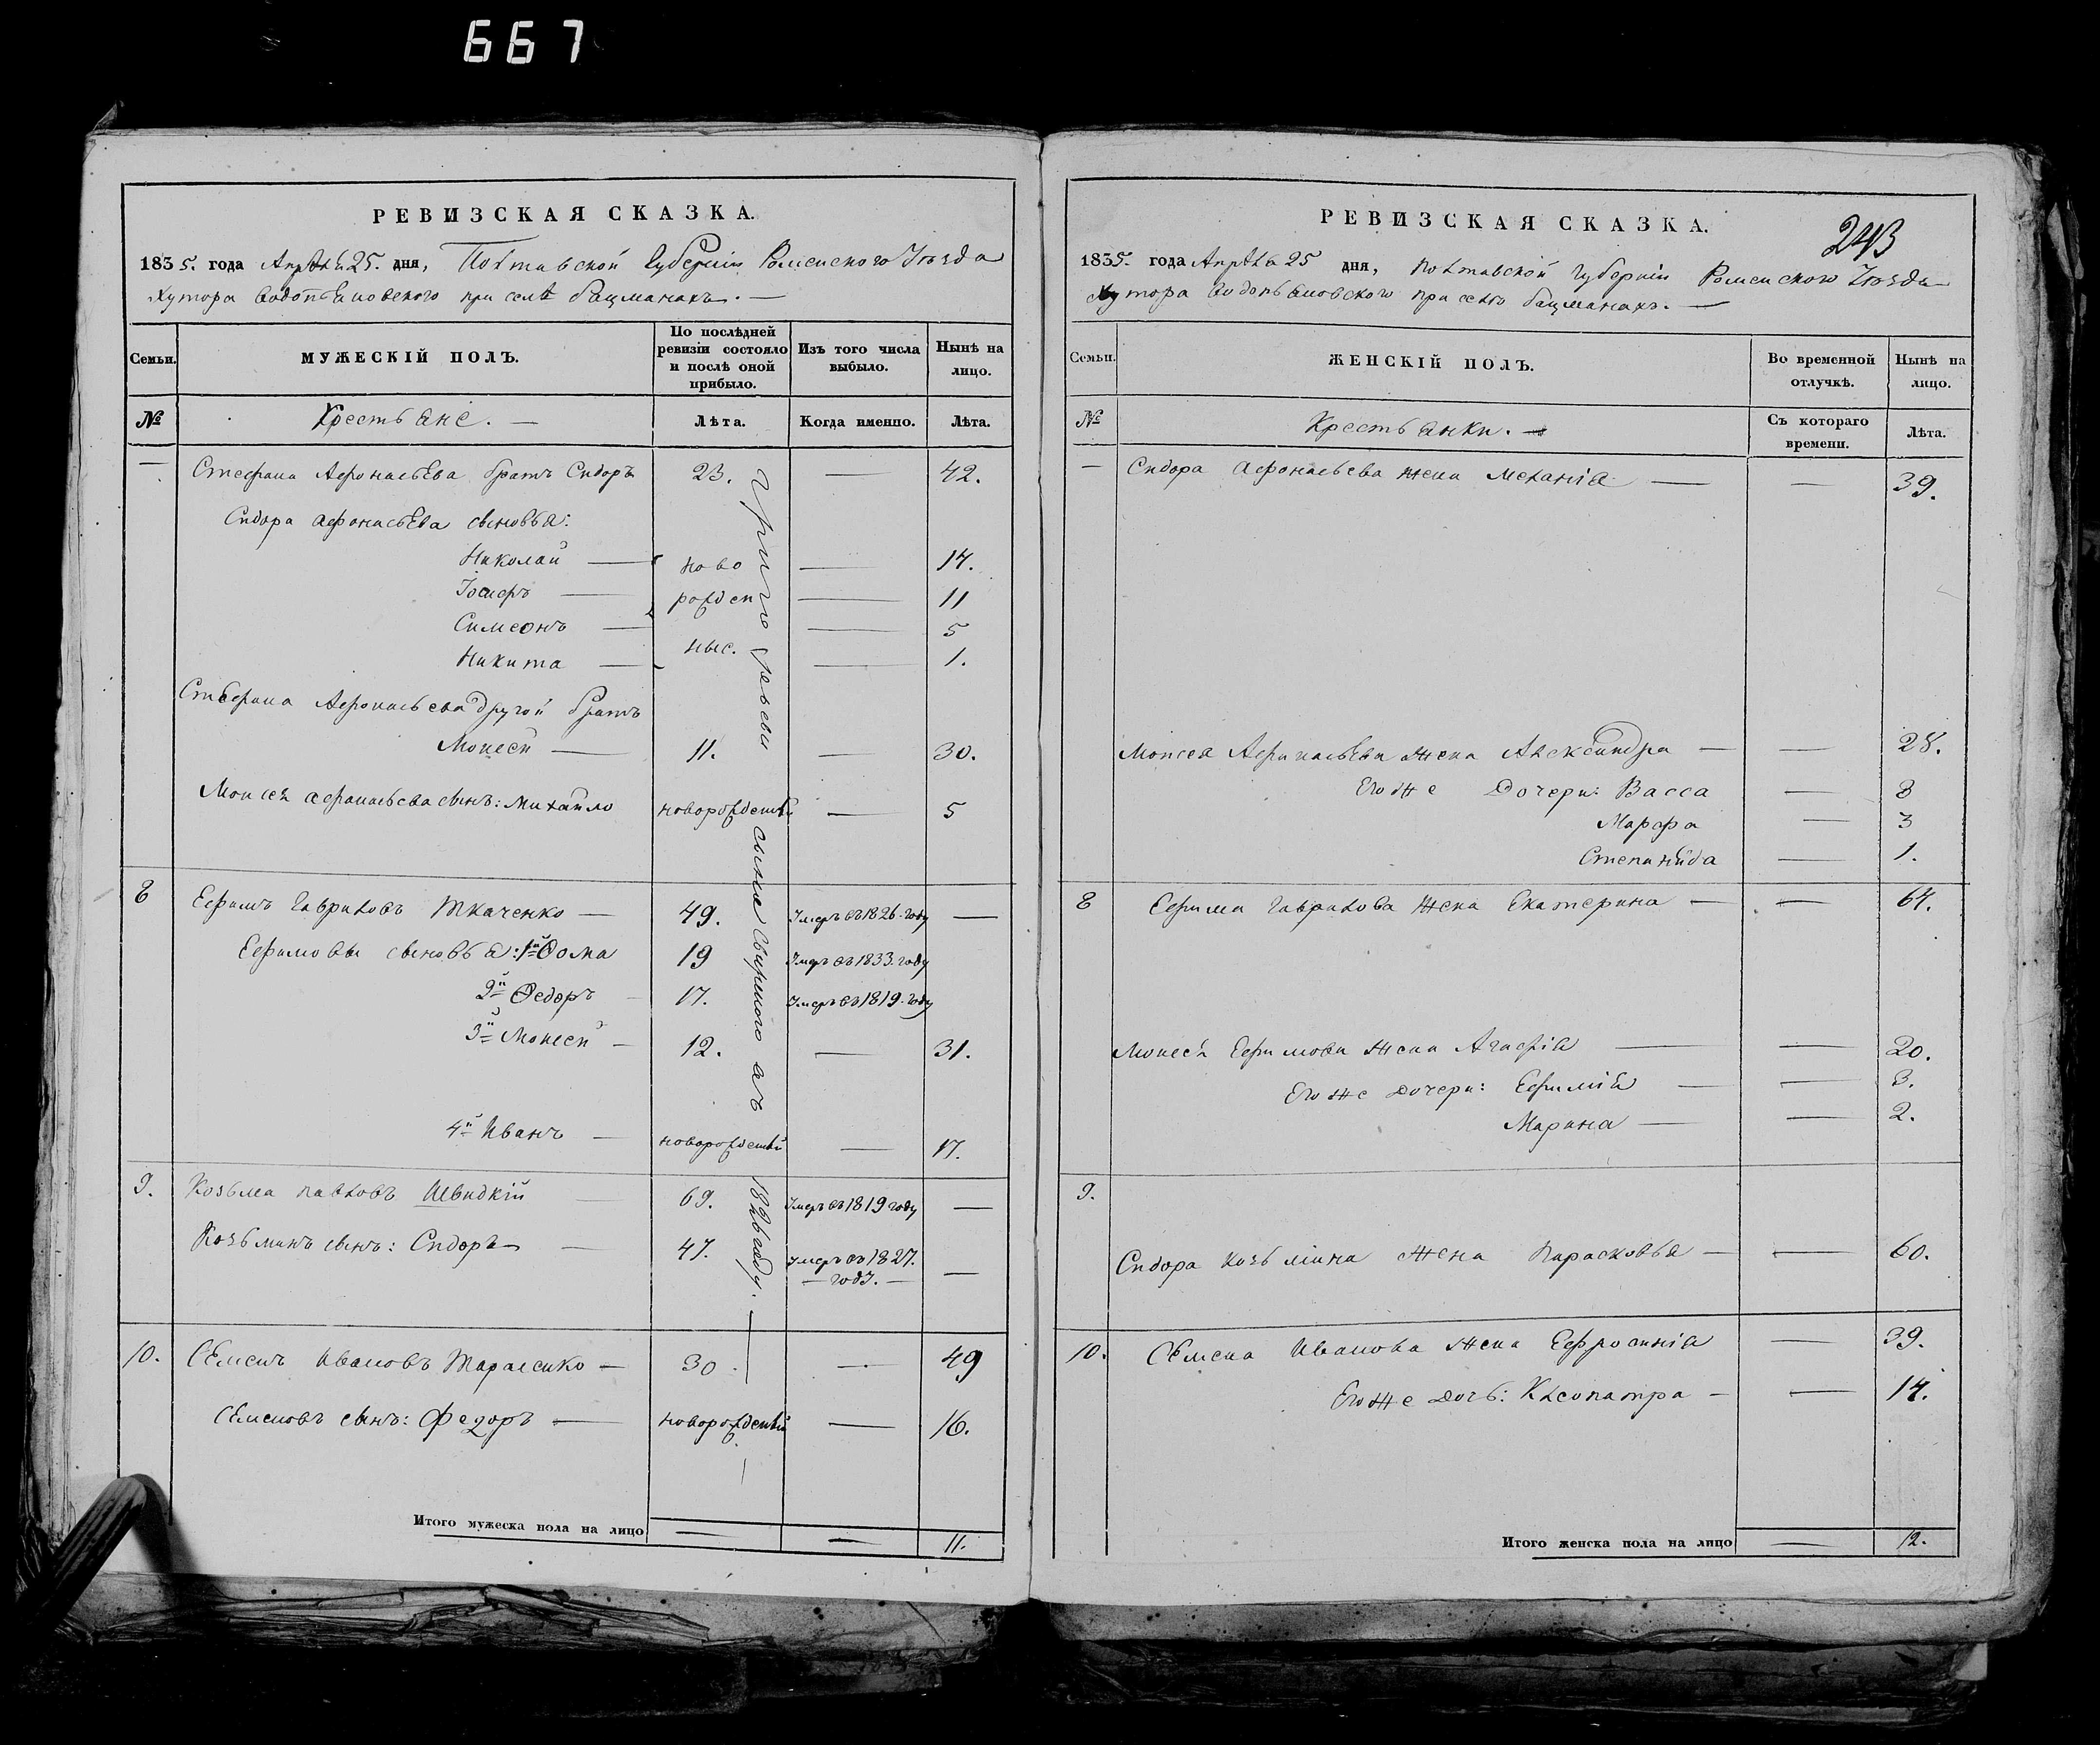 667
РЕВИЗСКАЯ СКАЗКА.
1835. года Апрѣля 25. дня, Полтавской Губерніи Роменского Уѣзда
Хутора при селѣ Бацманахъ. —
Семьи.
МУЖЕСКІЙ ПОЛЪ.
По послѣдней ревизіи состояло и послѣ оной прибыло.
Изъ того числа выбыло.
Нынѣ на лицо.
№
Крестьяне. —
Лѣта.
Когда именно.
Лѣта.
— Стефана Афонасьева братъ Сидоръ 23. — 42.
Сидора Афонасьева сыновья:
Николай — ново — 14.
Іосифъ — рожден — 11
Симеонъ — — 5
Никита — ные. — 1.
Стефана Афонасьева другой братъ
Моисей — 11. — 30.
Моисея Афонасьева сынъ: Михайло новорожденный — 5
8 Ефимъ Гавриловъ Ткаченко — 49. Умеръ въ 1826. году —
Ефимовы сыновья: 1й Фома 19 Умеръ въ 1833. году
2й Федоръ 17. Умеръ въ 1819. году
3й Моисей — 12. — 31.
4й Иванъ — новорожденный — 17.
9. Козьма Павловъ Швидкій — 69. Умеръ въ 1819 году —
Козьминъ сынъ: Сидоръ — 47. Умеръ въ 1827. — году. — —
10. Семенъ Ивановъ Тарасенко — 30. — 49
Семеновъ сынъ: Федоръ — новорожденный — 16.
Григорьева сына въ 1826 году. —
Итого мужеска пола на лицо — — 11.
РЕВИЗСКАЯ СКАЗКА.
243
1835. года Апрѣля 25 дня, Полтавской Губерніи Роменского Уѣзда
Хутора при селѣ Бацманахъ. —
Семьи.
ЖЕНСКІЙ ПОЛЪ.
Во временной отлучкѣ.
Нынѣ на лицо.
№
Крестьянки. —
Съ котораго времени.
Лѣта.
— Сидора Афонасьева жена Меланія — — 39.
Моисея Афонасьева жена Александра — — 28.
Его же Дочери: Васса — 8
Марфа — 3
Степанида — 1.
8 Ефима Гаврилова жена Екатерина — — 64.
Моисея Ефимова жена Агафія — — 20.
Его же дочери: Ефимія — — 3.
Марина — — 2.
9.
Сидора Козьмина жена Парасковья — — 60.
10. Семена Иванова жена Ефросинія — 39.
Его же дочь: Клеопатра — — 14.
Итого женска пола на лицо — 12.